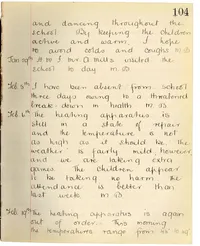 104
and dancing throughout the
school. By keeping the children
active and warm, I hope
to avoid colds and coughs
Jan 29th Mr A. Mills visited the
school to day
Feb 5th I have been absent from school
three days owing to a threatened
break-down in health
Feb 6th The heating apparatus is
still in a state of repair
and the temperature is not
as high as it should be. The
weather is fairly mild however
and we are taking extra
games. The children appear
to be taking no harm. The
attendance is better than
last week.
Feb 19th The heating apparatus is again
out of order. This morning
the temperatures range from 45° to